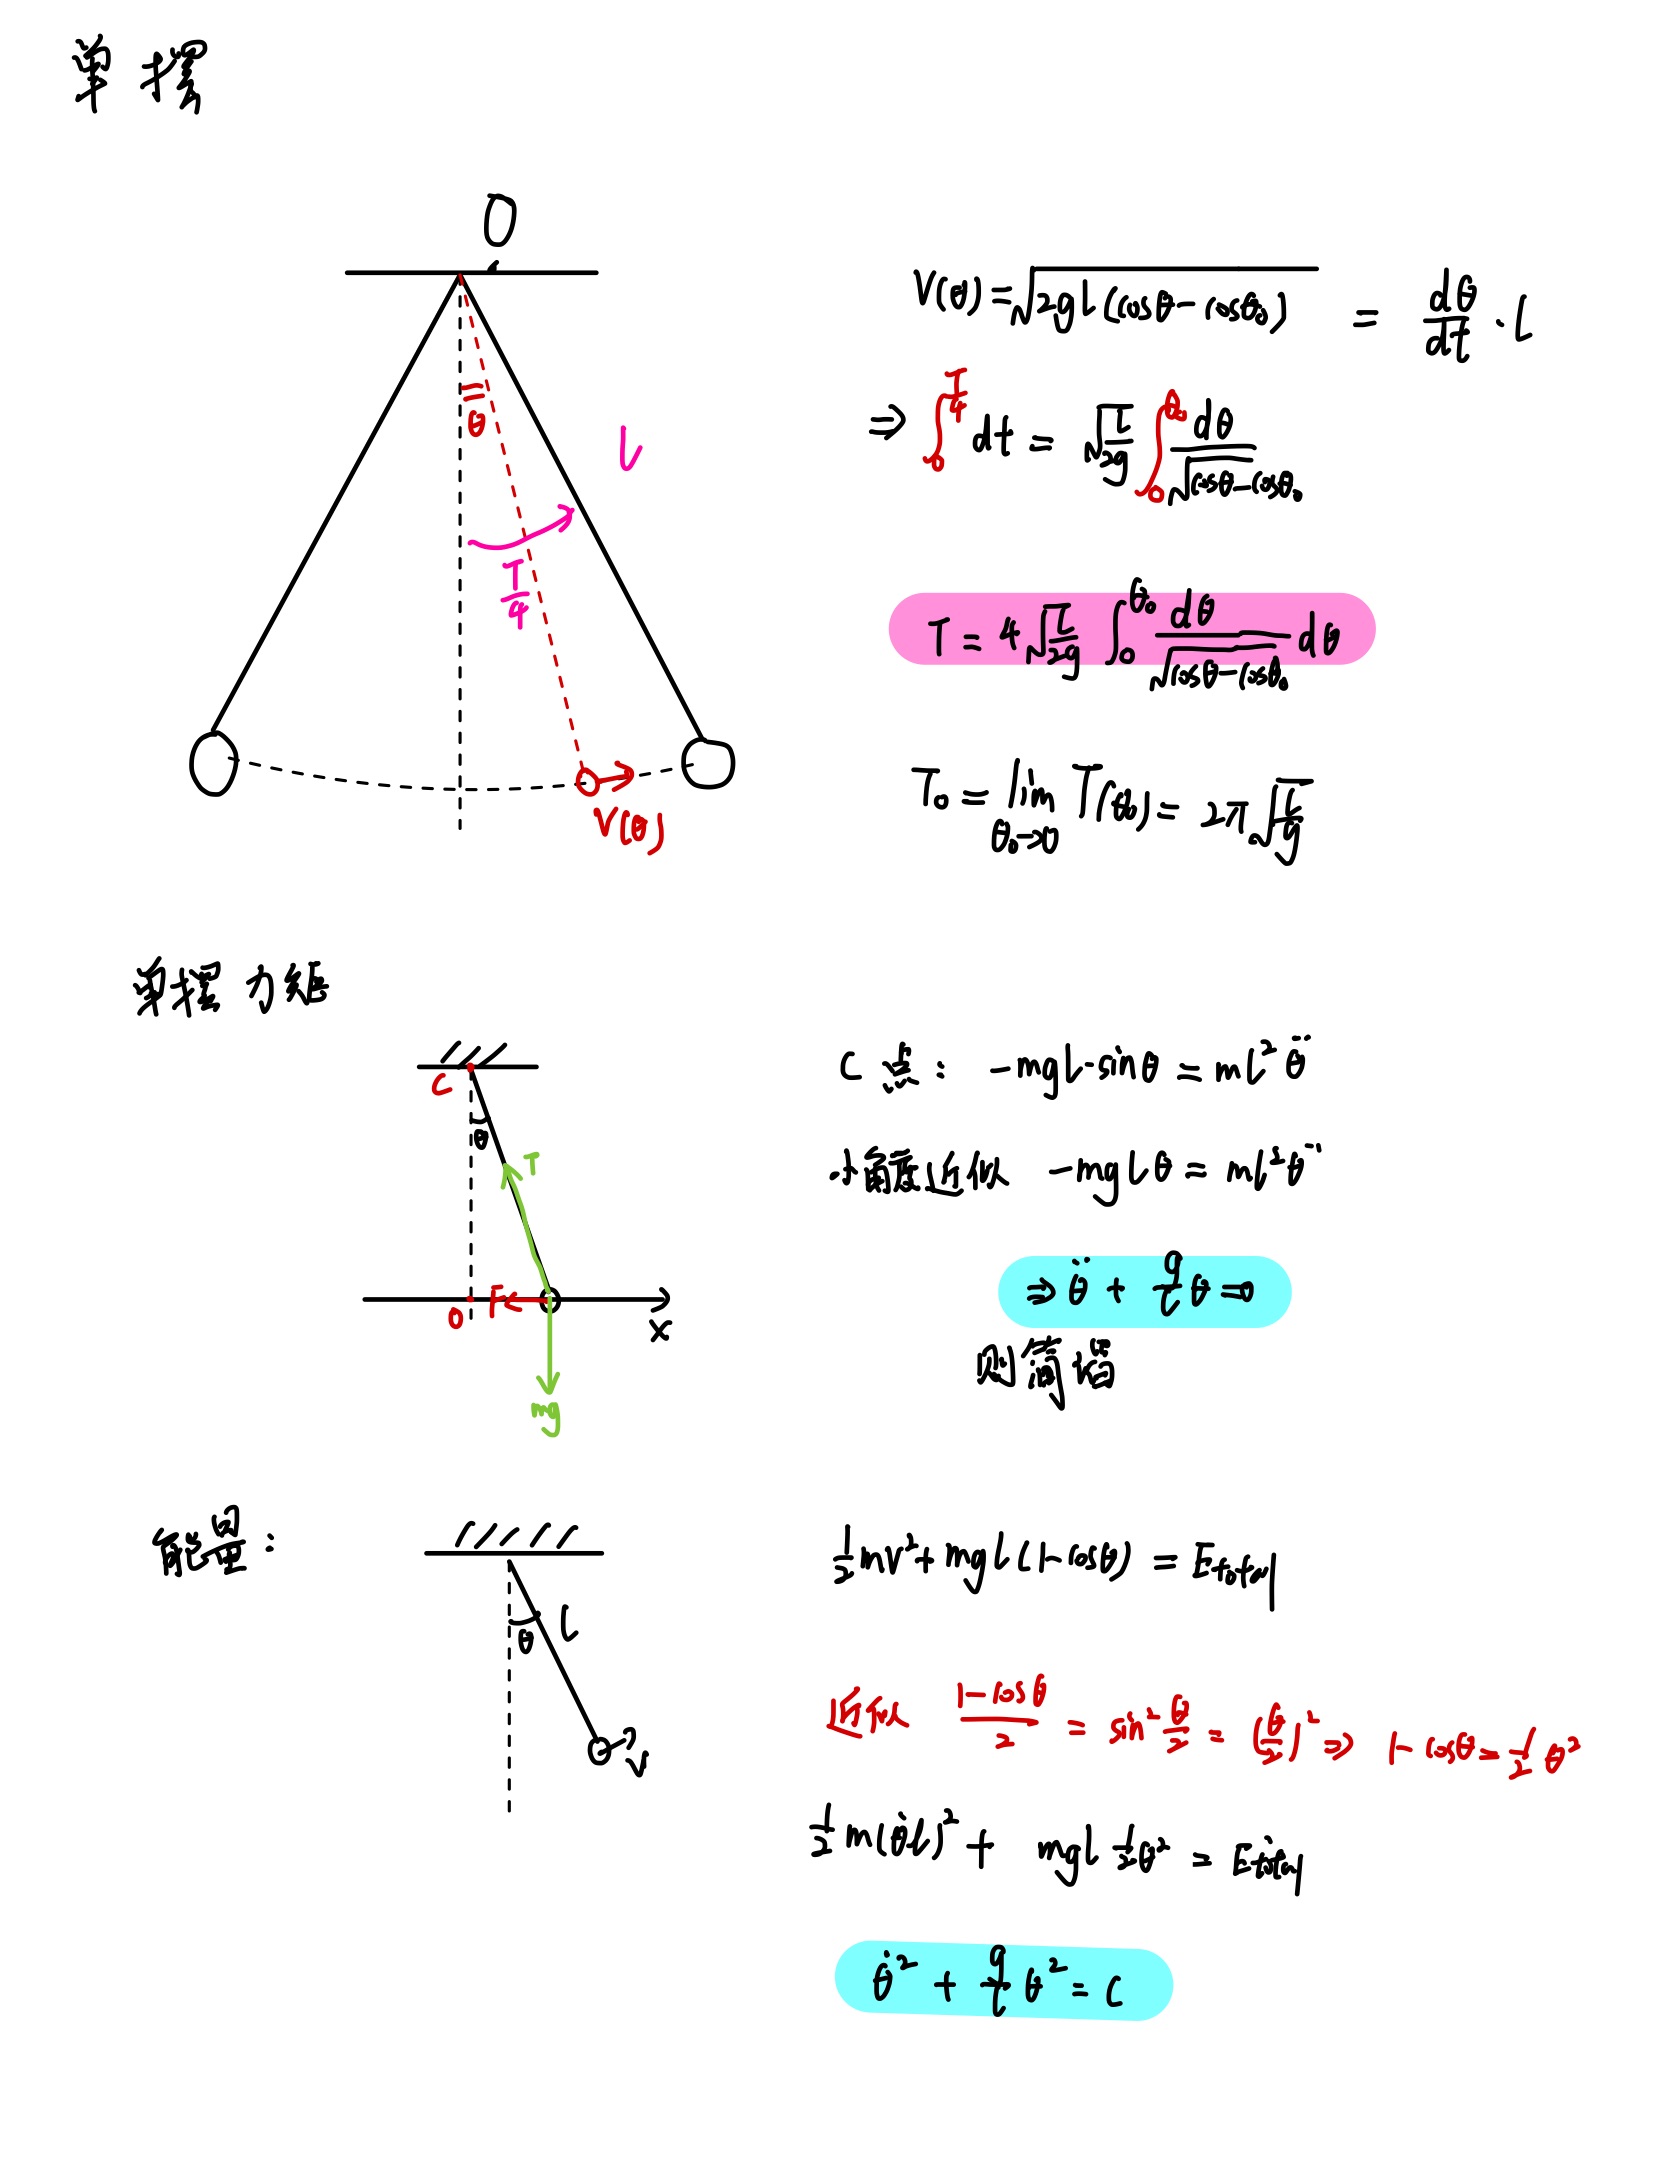 单摆
O
V(θ) = √(2gl(cosθ − cosθ₀)) = dθ/dt · l
θ
l
⇒ ∫₀^(T/4) dt = √(l/2g) ∫₀^(θ₀) dθ/√(cosθ − cosθ₀)
T/4
T = 4√(l/2g) ∫₀^(θ₀) dθ/√(cosθ − cosθ₀) dθ
V(θ)
T₀ = lim_(θ₀→0) T(θ₀) = 2π√(l/g)
单摆力矩
C
θ
T
F
O
x
mg
C点: −mgl·sinθ = ml²θ̈
小角度近似 −mglθ = ml²θ̈
⇒ θ̈ + g/l θ = 0
则简谐
能量:
θ
l
v
½mv² + mgl(1−cosθ) = Etotal
近似 (1−cosθ)/2 = sin²θ/2 = (θ/2)² ⇒ 1−cosθ = ½θ²
½m(θ̇l)² + mgl½θ² = Etotal
θ̇² + g/l θ² = C